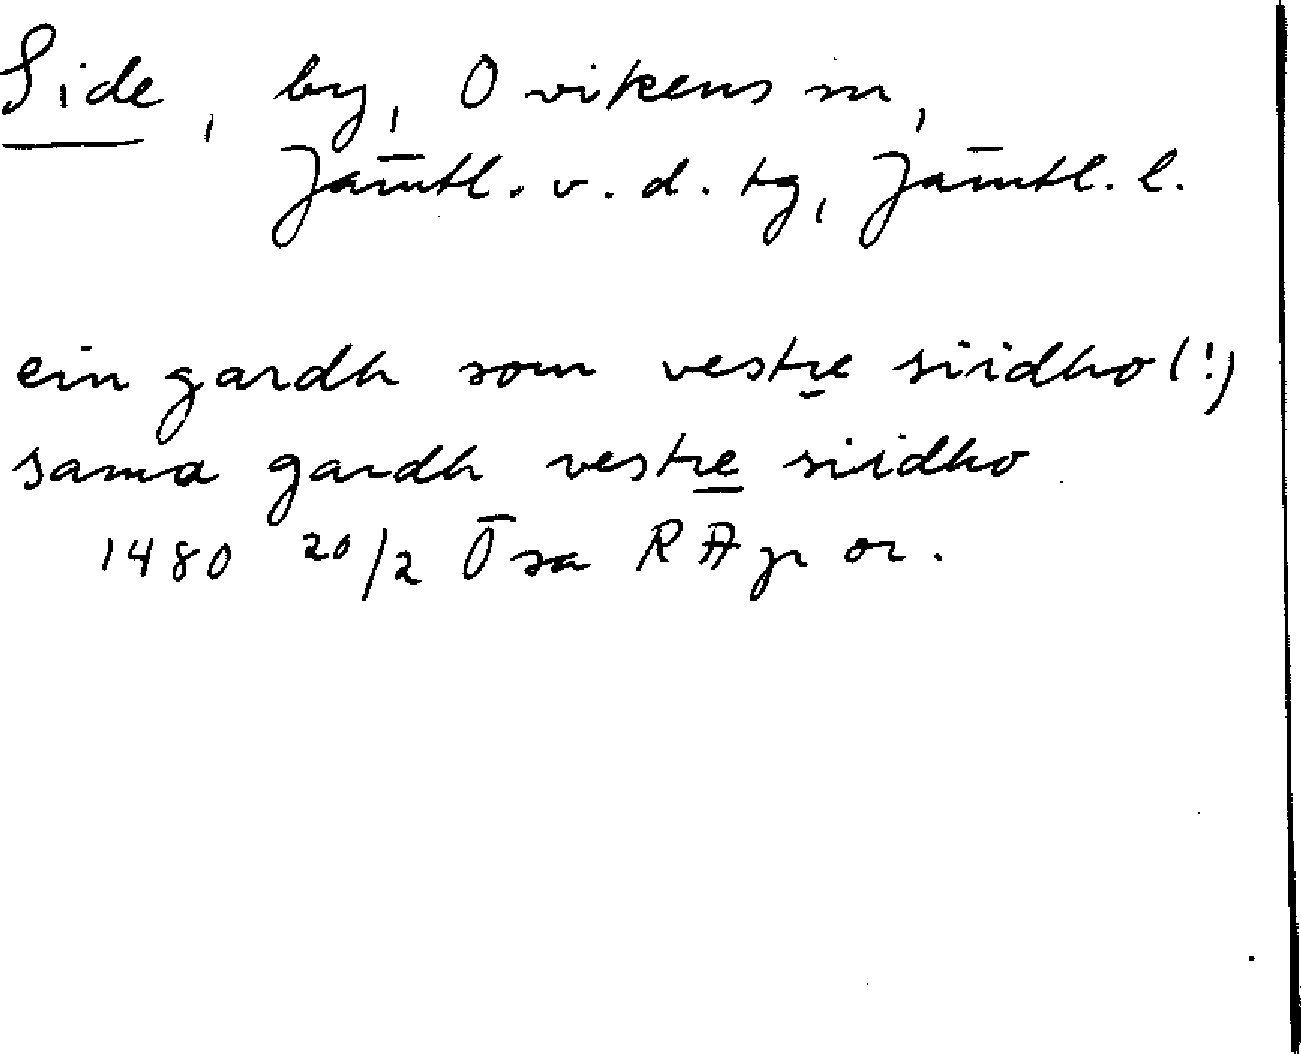 Side, by, Ovikens sn,
Jämtl. v. d. tg, Jämtl. l.
ein gardh som vestre siidho (!)
sama gardh vestre siidho
1480 20/2 Ösa RA p or.